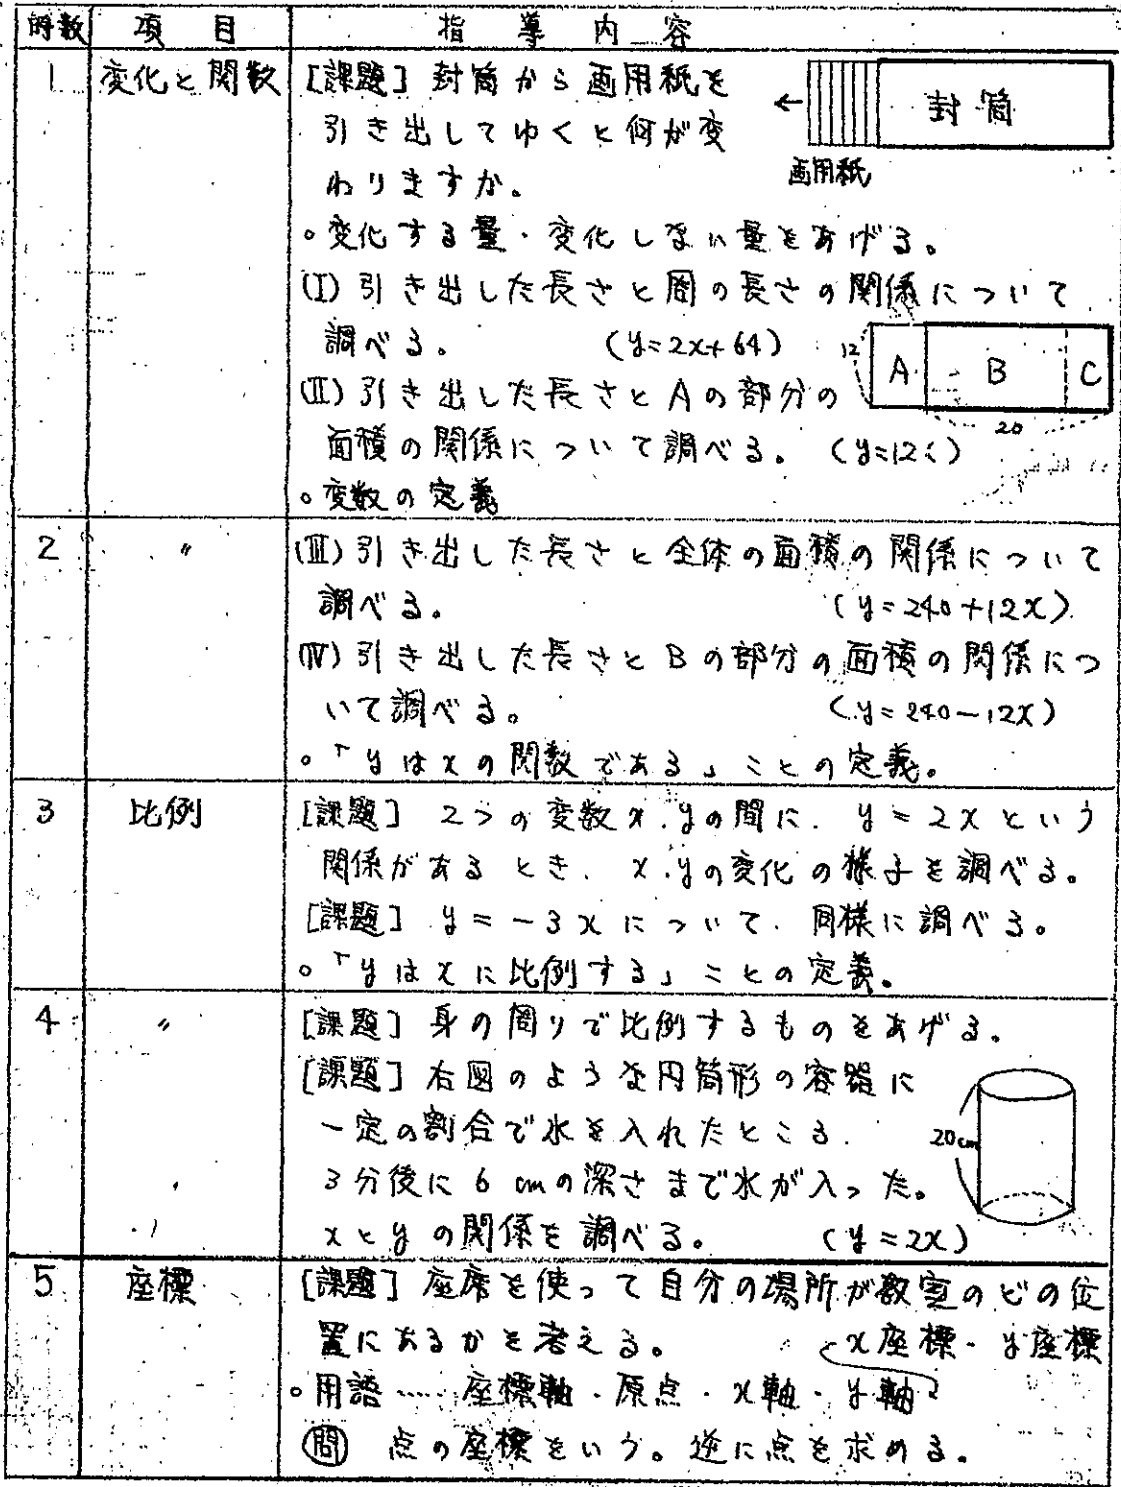 時数 項目 指導内容
1 変化と関数 [課題] 封筒から画用紙を
引き出してゆくと何が変
わりますか。
← 封筒
画用紙
。変化する量・変化しない量をあげる。
(I) 引き出した長さと周の長さの関係について
調べる。 (y=2x+64)
12 A B C
20
(II) 引き出した長さとAの部分の
面積の関係について調べる。 (y=12
。変数の定義
2 〃 (III) 引き出した長さと全体の面積の関係について
調べる。 (y=240+12x)
(IV) 引き出した長さとBの部分の面積の関係につ
いて調べる。 (y=240-12x)
。「yはxの関数である」ことの定義。
3 比例 [課題] 2つの変数x.yの間に. y=2xという
関係があるとき. x.yの変化の様子を調べる。
[課題] y=-3xについて. 同様に調べる。
。「yはxに比例する」ことの定義。
4 〃 [課題] 身の周りで比例するものをあげる。
[課題] 右図のような円筒形の容器に
一定の割合で水を入れたところ.
3分後に6cmの深さまで水が入った。
xとyの関係を調べる。 (y=2x)
20cm
5 座標 [課題] 座席を使って自分の場所が教室のどの位
置にあるかを考える。 x座標・y座標
。用語……座標軸・原点・x軸・y軸
問 点の座標をいう。逆に点を求める。